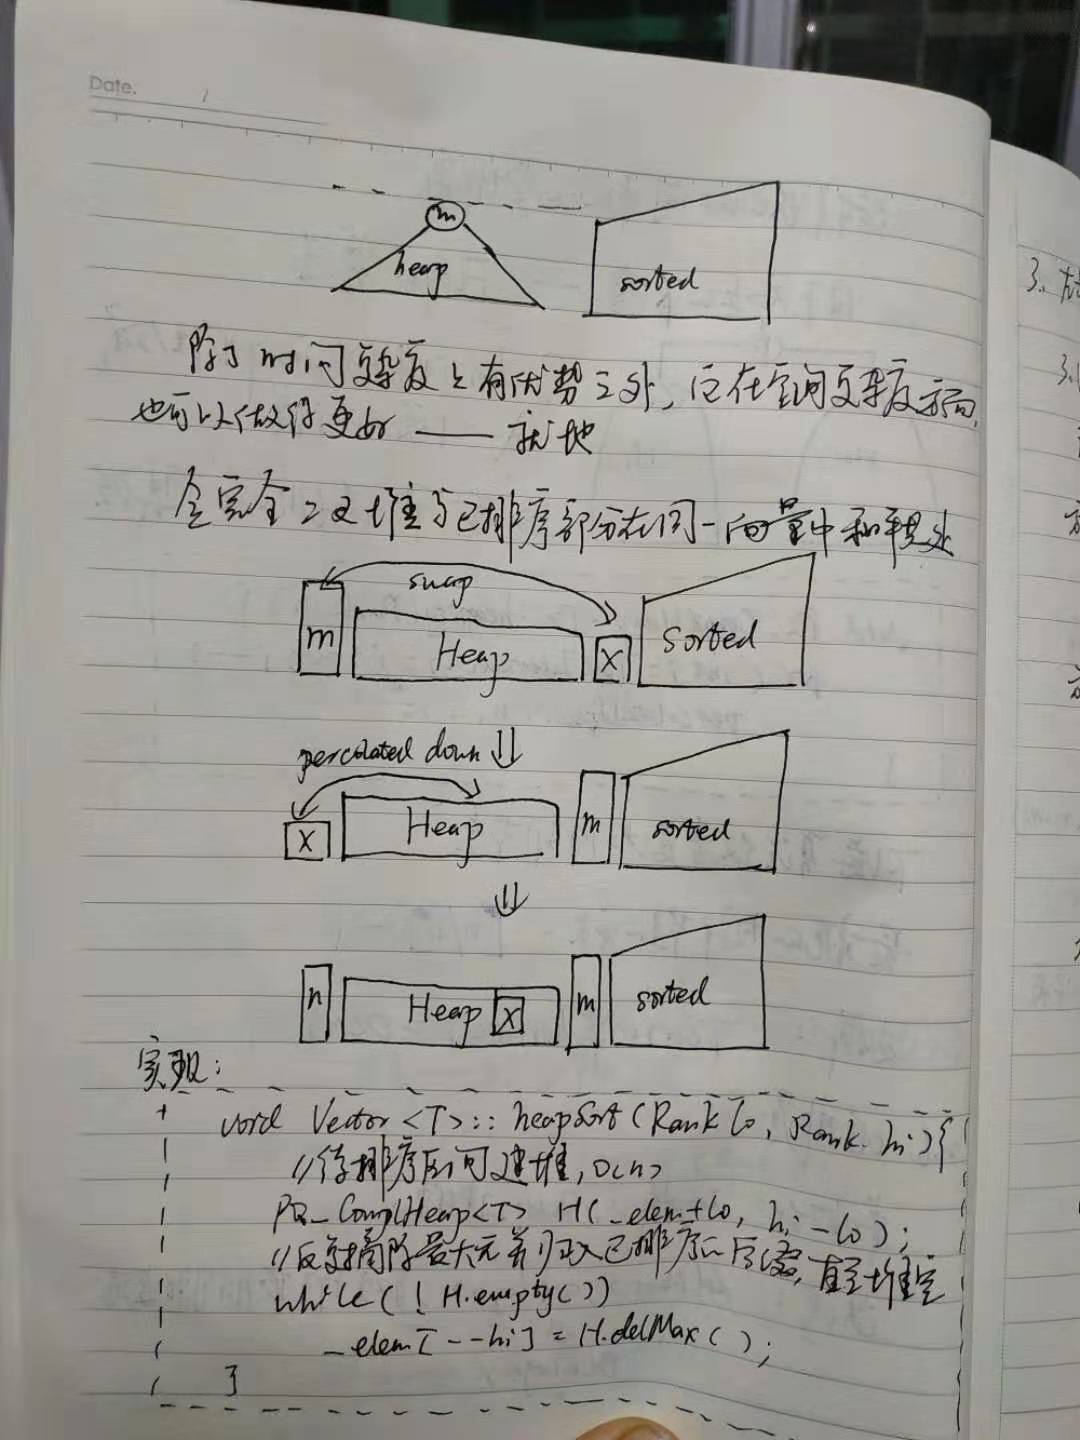 Date.
m
heap
sorted
除了时间复杂度上有优势之外,它在空间复杂度方面,
也可以做得更好 —— 就地
令完全二叉堆与已排序部分在同一向量中和平共处
swap
m Heap X sorted
percolated down
X Heap m sorted
n Heap X m sorted
实现:
void Vector<T>::heapSort(Rank lo, Rank hi){
//待排序区间建堆,O(n)
PQ_ComplHeap<T> H(_elem+lo, hi-lo);
//反复摘除最大元并归入已排序的后缀,直至堆空
while(!H.empty())
_elem[--hi] = H.delMax();
}
3.